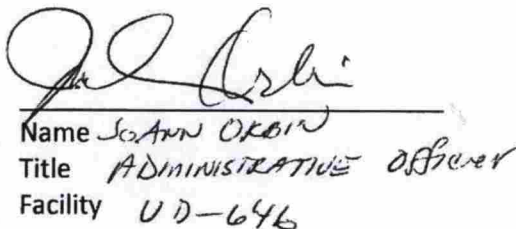 Name JoAnn Orbin
Title ADMINISTRATIVE Officer
Facility UD-646